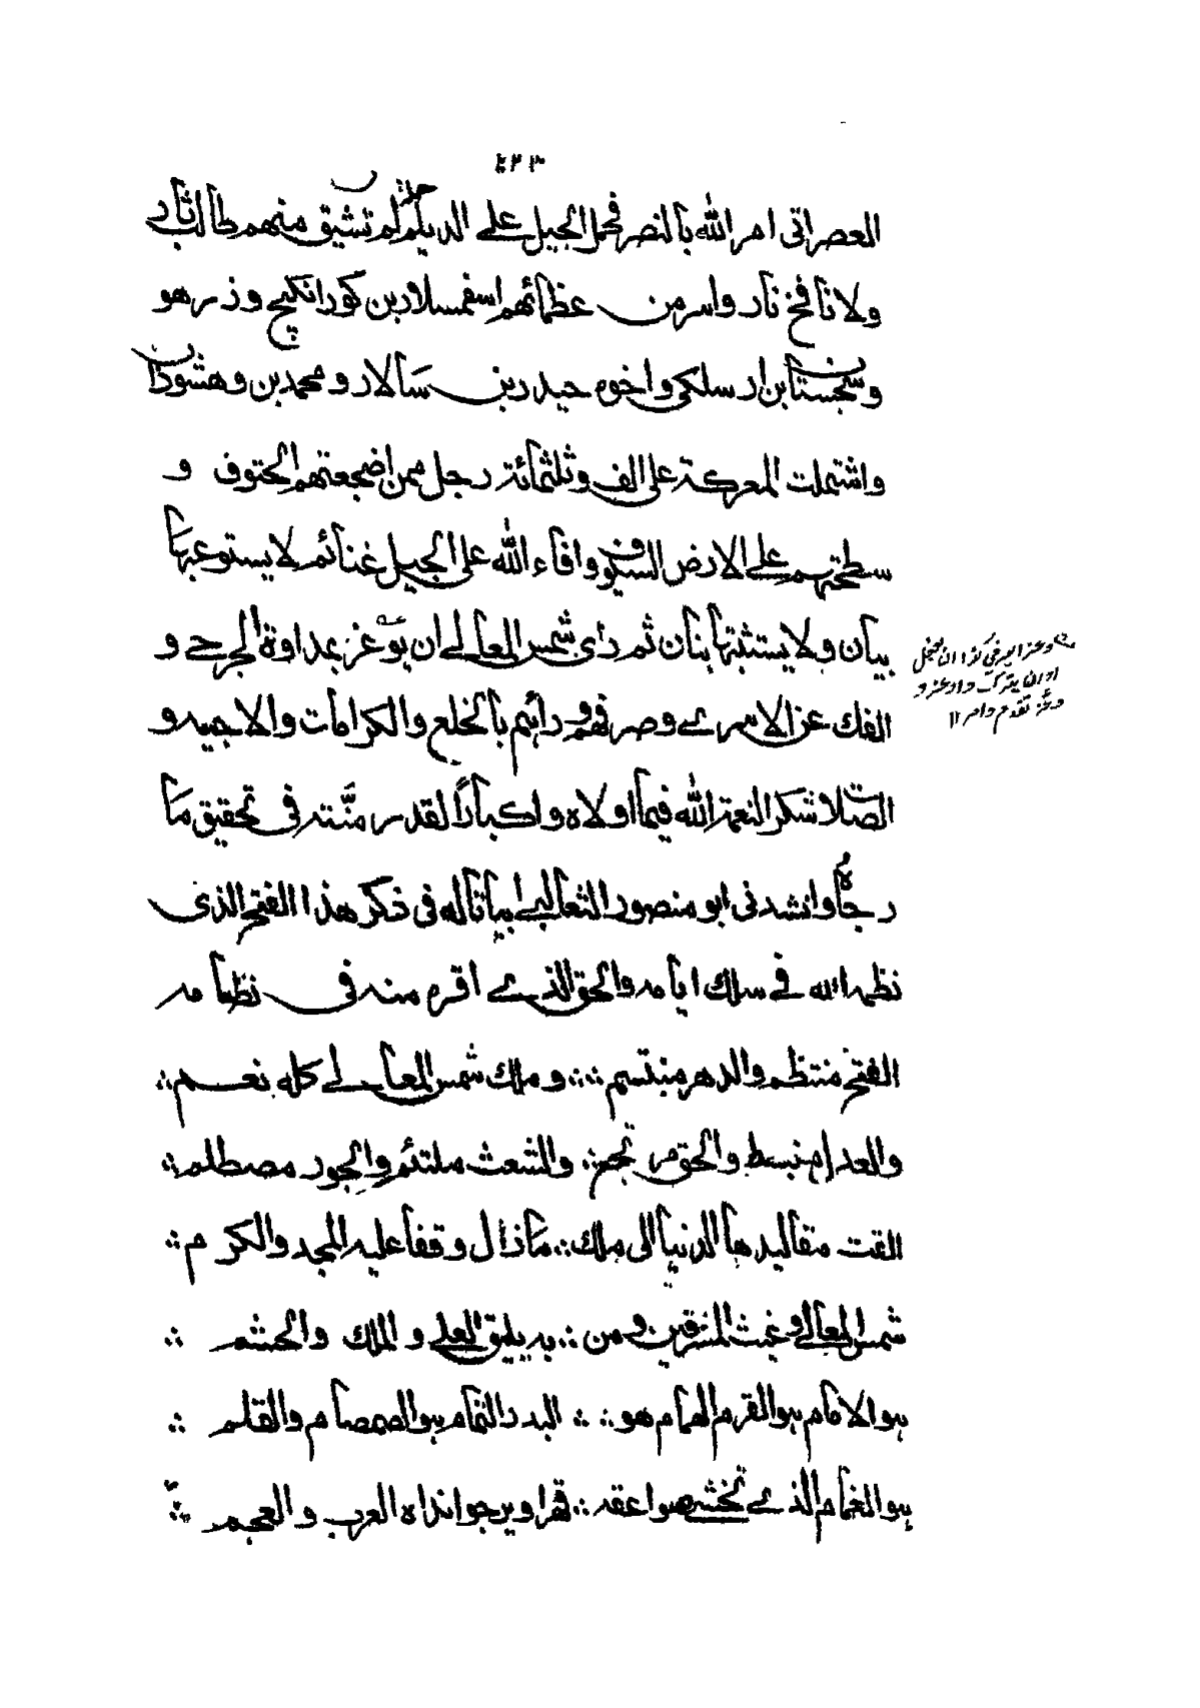 ٤٢٣
العصر اتى امر الله بالنصر فحمل الجيل على الديلم حملة لم تشيق منهم طالب ثار
ولا نافخ نار واسر من عظمائهم اسفهسلار بن كورانكيج وزرهو
وسجستان بن ارسلكى واخوه حيدر بن سالار ومحمد بن وهشوذان
واشتملت المعركة على الف وثلثمائة رجل ممن اضجعتهم الحتوف و
سطحتهم على الارض السيوف وافاء الله على الجيل غنائم لا يستوعبها
بيان ولا يستثبتها بنان ثم رأى شمس المعالى ان يوعز بمداواة الجرحى و
الفك عن الاسرى وصرفهم وراءهم بالخلع والكرامات والاجبيه و
الصلات شكرا لنعمة الله فيما اولاه واكبارا لقدر منّته فى تحقيق ما
رجاه وانشدنى ابو منصور الثعالبى ابياتا له فى ذكر هذا الفتح الذى
نظمه الله فى سلك ايامه والحق الذى اقره منه فى نظامه
الفتح منتظم والدهر مبتسم ؞ وملك شمس المعالى كله نعم ؞
والعدل منبسط والحق مرتجع ؞ والشعث ملتئم والجور مصطلم ؞
القت مقاليدها الدنيا الى ملك ؞ ما زال وقفا عليه المجد والكرم ؞
شمس المعالى وغيث المشرقين ومن ؞ به يليق العلى والملك والحشم ؞
هو الامام هو القرم الهمام هو ؞ البدر التمام هو الصمصام والقلم ؞
هو الغمام الذى تخشى صواعقه ؞ قهرا ويرجو انداه العرب والعجم ؞
وعز اليه فى كذا ان يفعل
او ان يترك واوعز و
وعّز تقدم وامر ١٢